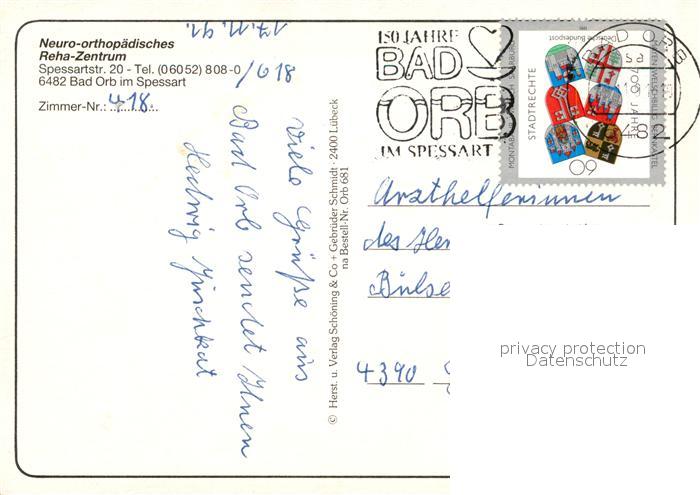 Neuro-orthopädisches
Reha-Zentrum
Spessartstr. 20 - Tel. (06052) 808-0/618
6482 Bad Orb im Spessart
Zimmer-Nr.: 418
17.11.91.
Viele Grüße aus
Bad Orb sendet Ihnen
Hedwig
© Herst. u. Verlag Schöning & Co + Gebrüder Schmidt · 2400 Lübeck
na Bestell-Nr. Orb 681
150 JAHRE
BAD
ORB
IM SPESSART
Deutsche Bundespost
STADTRECHTE
700 JAHRE
60
Arzthelferinnen
des
4390
privacy protection
Datenschutz